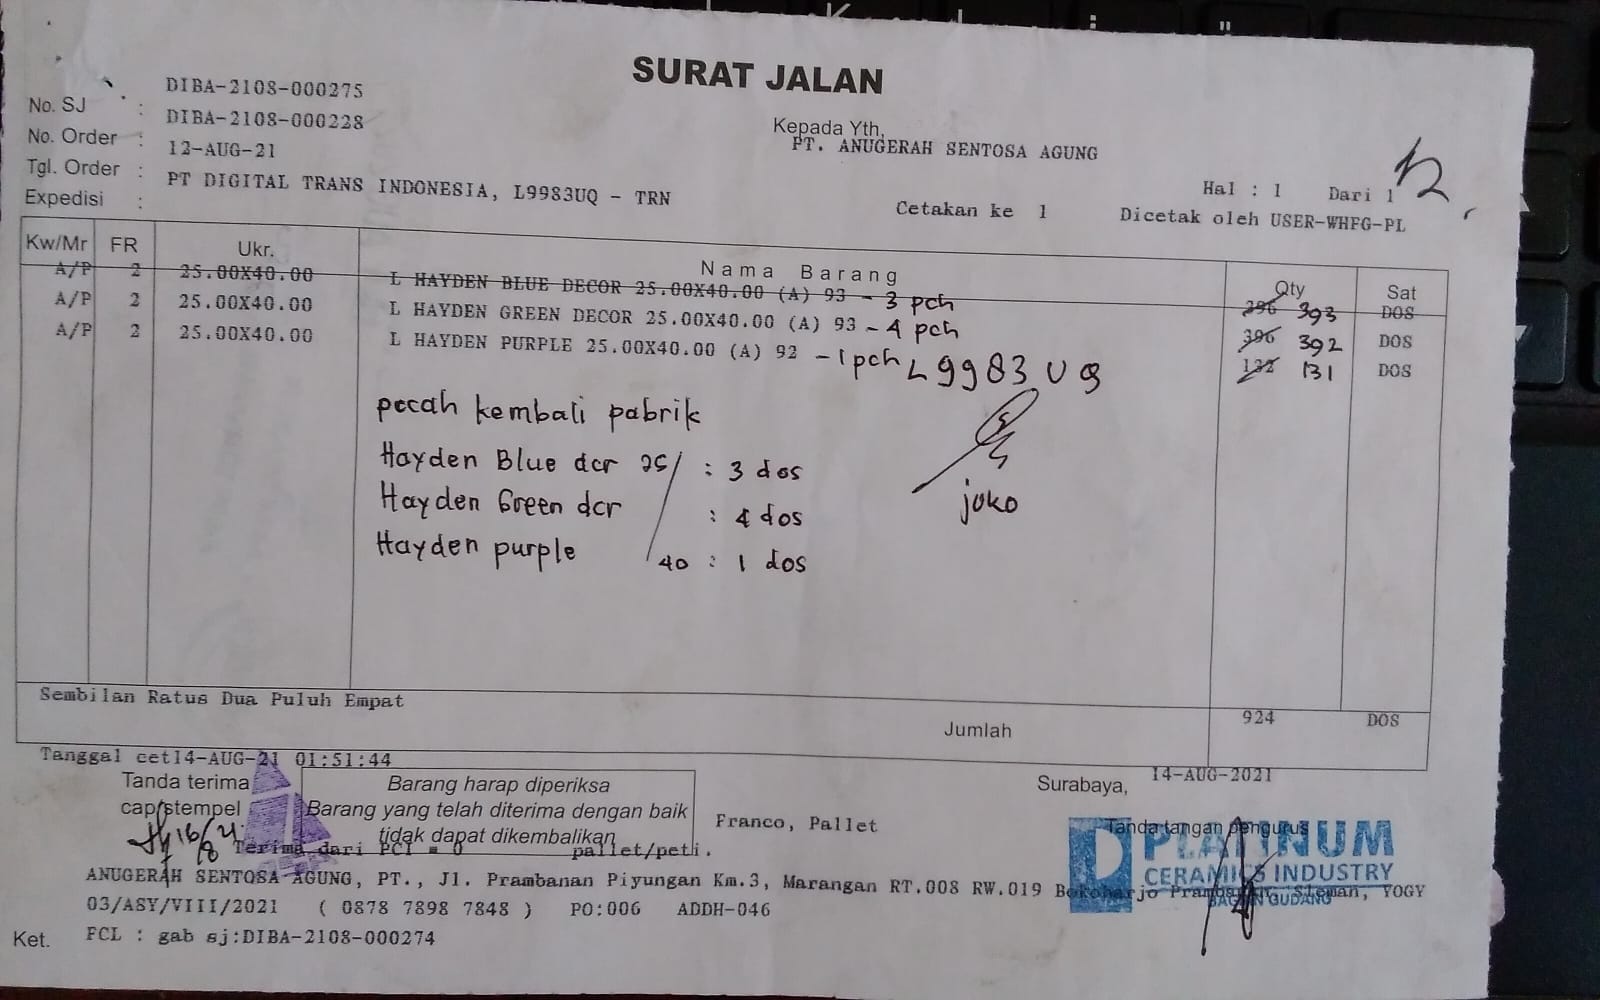 SURAT JALAN
No. SJ : DIBA-2108-000275
No. Order : DIBA-2108-000228
Tgl. Order : 12-AUG-21
Expedisi : PT DIGITAL TRANS INDONESIA, L9983UQ - TRN
Kepada Yth,
PT. ANUGERAH SENTOSA AGUNG
Hal : 1 Dari 1
Cetakan ke 1 Dicetak oleh USER-WHFG-PL
Kw/Mr FR Ukr. Nama Barang Qty Sat
A/P 2 25.00X40.00 L HAYDEN BLUE DECOR 25.00X40.00 (A) 93 - 3 pch 396 393 DOS
A/P 2 25.00X40.00 L HAYDEN GREEN DECOR 25.00X40.00 (A) 93 - 4 pch 396 392 DOS
A/P 2 25.00X40.00 L HAYDEN PURPLE 25.00X40.00 (A) 92 - 1 pch 132 131 DOS
L 9983 UQ
pecah kembali pabrik
Hayden Blue dcr 25/ : 3 dos
Hayden Green dcr : 4 dos
Hayden purple /40 : 1 dos
joko
Sembilan Ratus Dua Puluh Empat
Jumlah 924 DOS
Tanggal cet14-AUG-21 01:51:44
Tanda terima
cap/stempel
16/8 21
Barang harap diperiksa
Barang yang telah diterima dengan baik
tidak dapat dikembalikan
Surabaya, 14-AUG-2021
Franco, Pallet
Tanda tangan pengurus
PLATINUM
CERAMICS INDUSTRY
BAGIAN GUDANG
Terima dari PCI = 0 pallet/peti.
ANUGERAH SENTOSA AGUNG, PT., Jl. Prambanan Piyungan Km.3, Marangan RT.008 RW.019 Bokoharjo Prambanan, Sleman, YOGY
03/ASY/VIII/2021 ( 0878 7898 7848 ) PO:006 ADDH-046
Ket. FCL : gab sj:DIBA-2108-000274